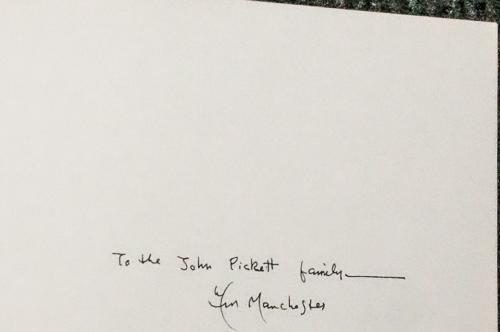 To the John Pickett family——
Wm Manchester